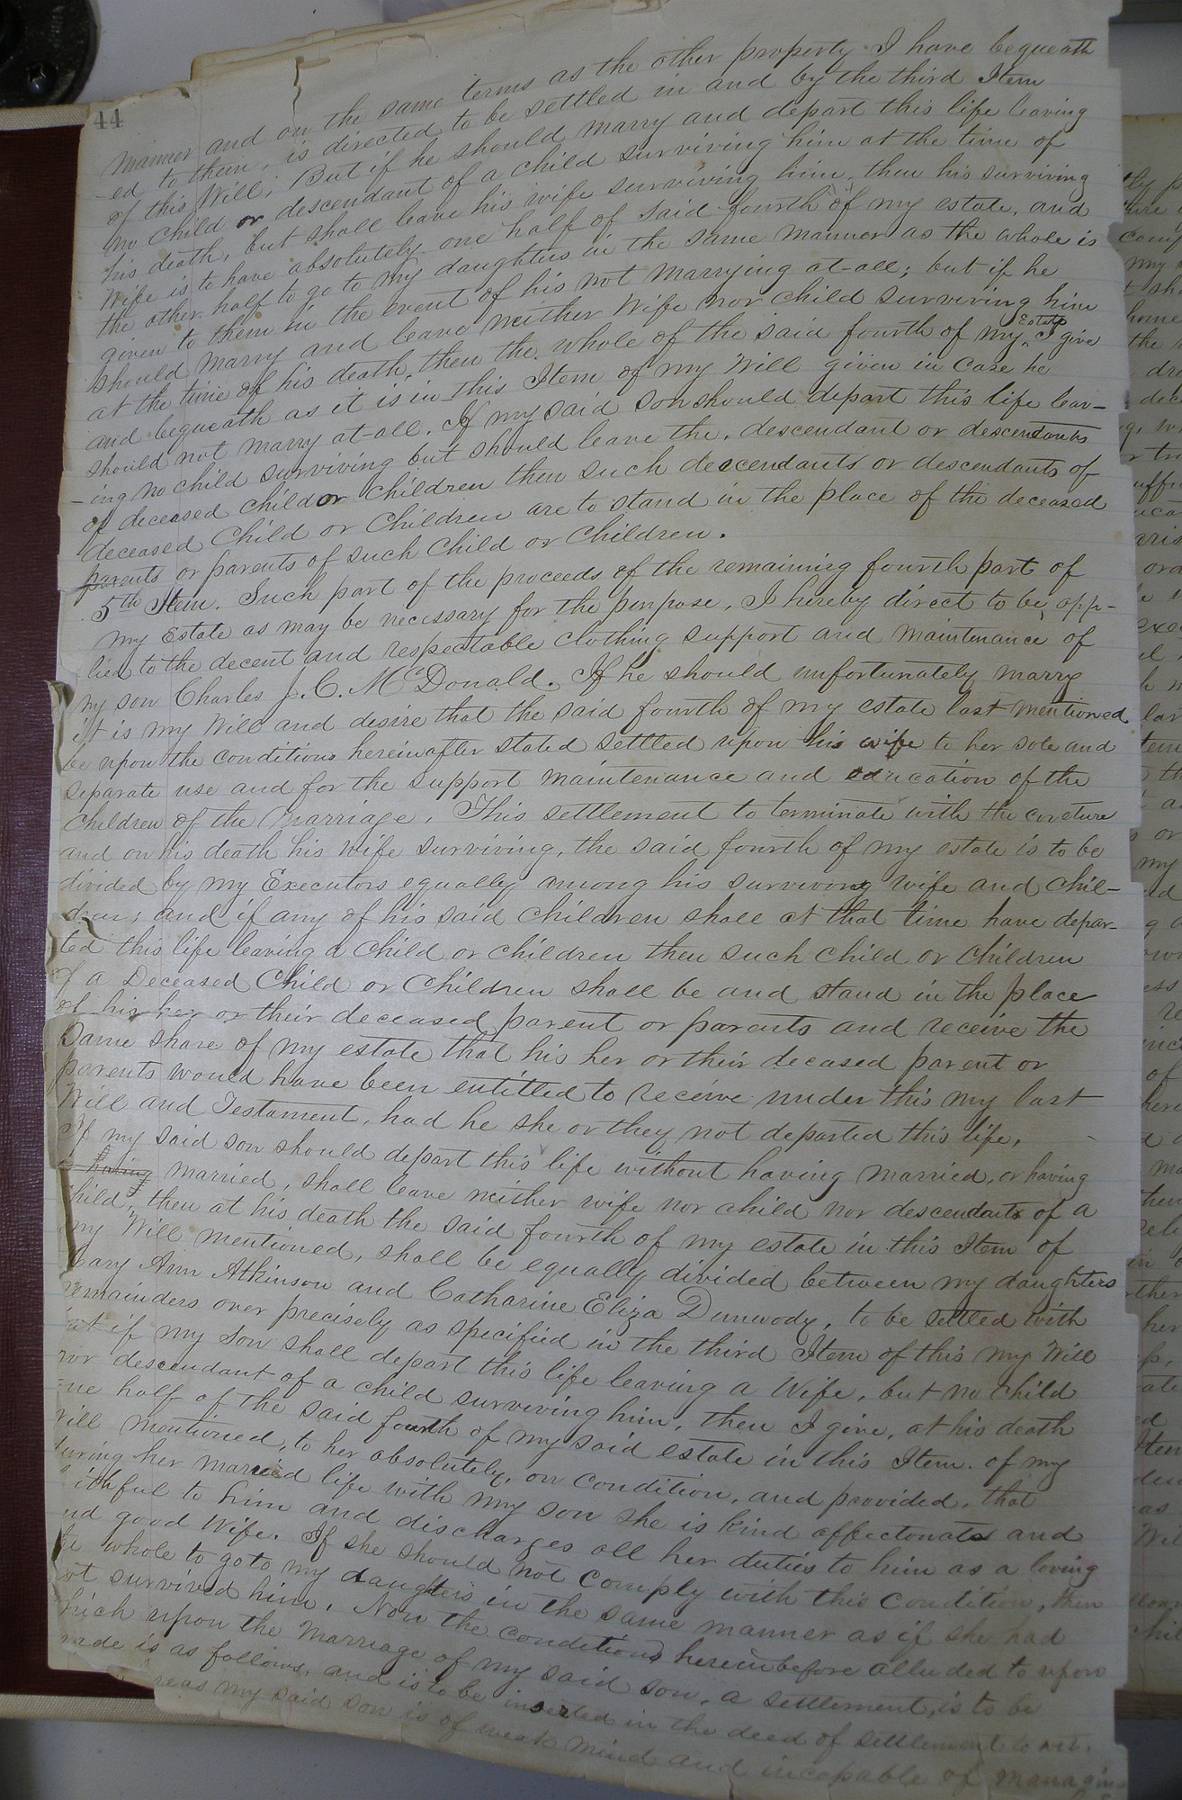 44
manner and on the same terms as the other property I have bequeath
-ed to them, is directed to be settled in and by the third Item
of this Will; But if he should marry and depart this life leaving
no child or descendant of a child surviving him at the time of
his death, but shall leave his wife surviving him, then his surviving
Wife is to have absolutely one half of said fourth of my estate, and
the other half to go to my daughters in the same manner as the whole is
given to them in the event of his not marrying at-all; but if he
should marry and leave neither Wife nor child surviving him
at the time of his death, then the whole of the said fourth of my Estate I give
and bequeath as it is in this Item of my Will given in case he
should not marry at-all. If my said son should depart this life leav-
-ing no child surviving but should leave the descendant or descendants
of deceased child or children then such descendants or descendants of
deceased Child or Children are to stand in the place of the deceased
parents or parents of such Child or Children.
5th Item. Such part of the proceeds of the remaining fourth part of
my Estate as may be necessary for the purpose, I hereby direct to be app-
lied to the decent and respectable clothing support and maintenance of
my son Charles J. C. McDonald. If he should unfortunately marry
it is my Will and desire that the said fourth of my estate last mentioned
be upon the conditions hereinafter stated settled upon his wife to her sole and
separate use and for the support maintenance and education of the
Children of the Marriage. This settlement to terminate with the coverture
and on his death his wife surviving, the said fourth of my estate is to be
divided by my Executors equally among his surviving wife and chil-
dren; and if any of his said children shall at that time have depar-
ted this life leaving a child or children then such child or children
of a Deceased Child or Children shall be and stand in the place
of his her or their deceased parent or parents and receive the
Same share of my estate that his her or their decased parent or
parents would have been entitled to receive under this my last
Will and Testament, had he she or they not departed this life,
If my said son should depart this life without having married, or having
having married, shall leave neither wife nor child nor descendants of a
child, then at his death the said fourth of my estate in this Item of
my Will mentioned, shall be equally divided between my daughters
Mary Ann Atkinson and Catharine Eliza Dunwody, to be settled with
remainders over precisely as specified in the third Item of this my Will
at if my son shall depart this life leaving a Wife, but no child
nor descendant of a child surviving him, then I give, at his death
one half of the said fourth of my said estate in this Item of my
Will mentioned, to her absolutely, on condition, and provided, that
during her married life with my son she is kind affectonate and
ithful to him and discharges all her duties to him as a loving
nd good Wife. If she should not comply with this condition, then
the whole to go to my daughters in the same manner as if she had
not survived him. Now the conditions hereinbefore alluded to upon
which upon the Marriage of my said son, a settlement, is to be
made is as follows, and is to be inserted in the deed of settlement to wit.
reas my said son is of weak mind and incapable of managing